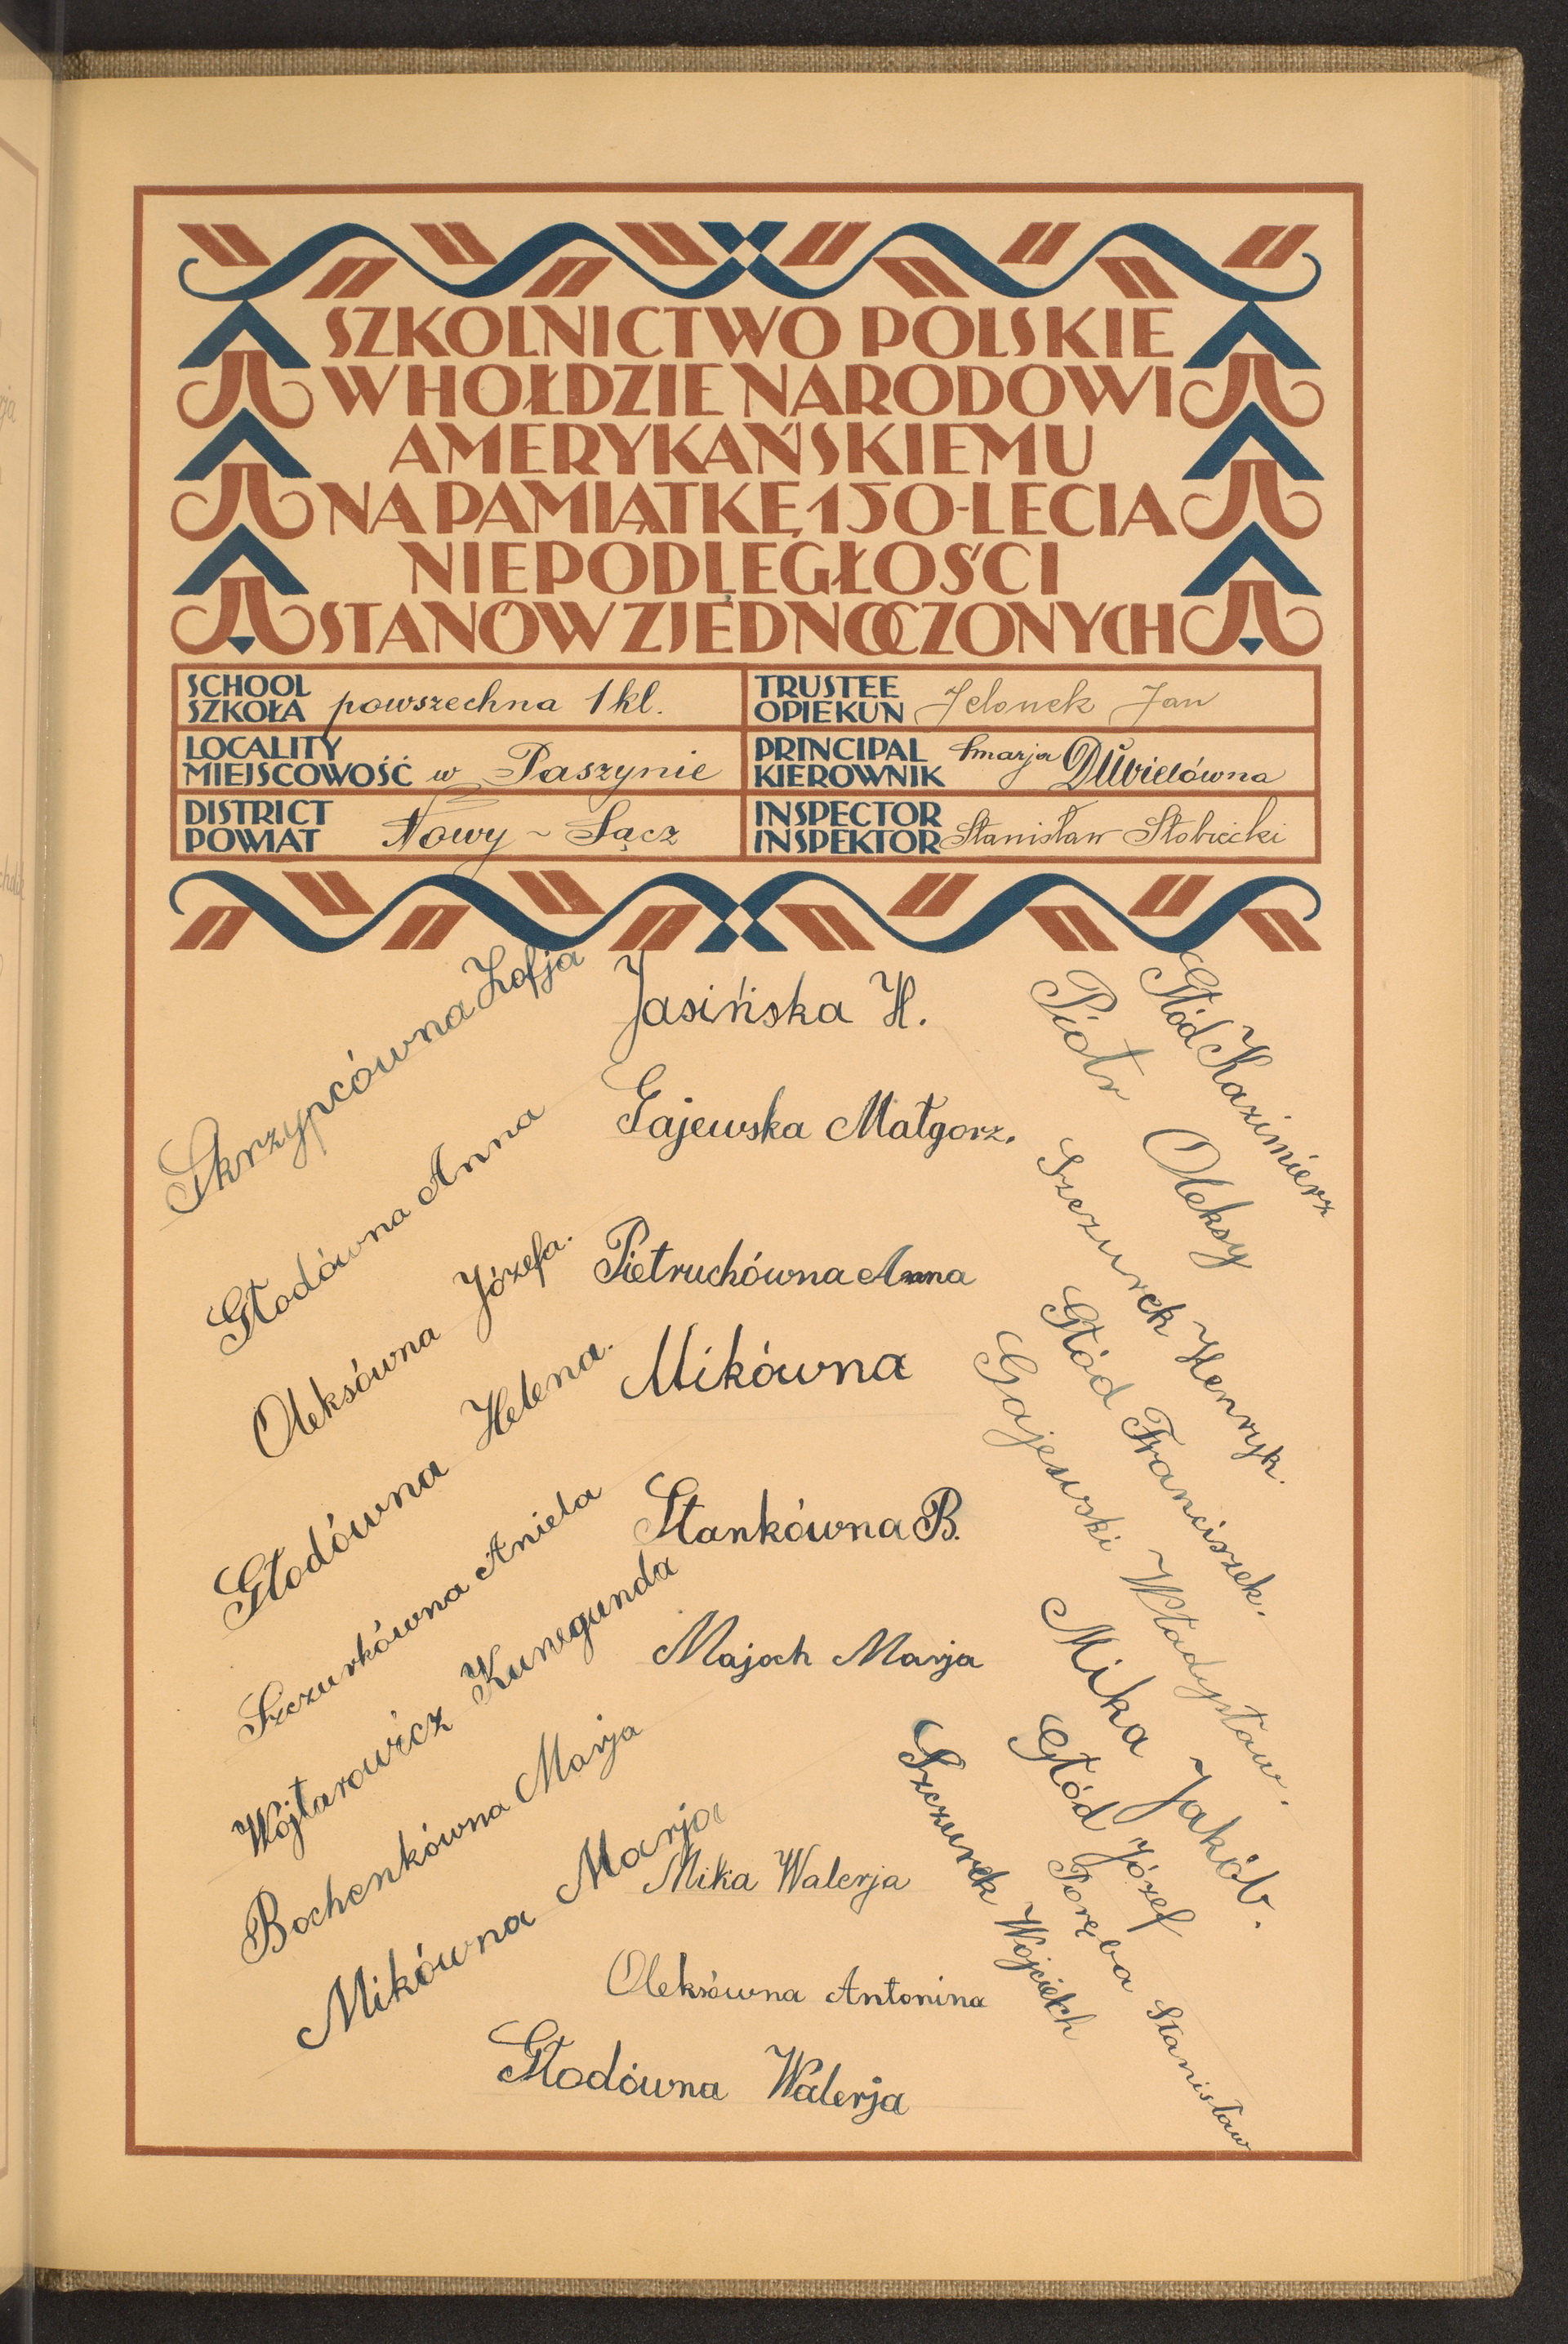 SZKOLNICTWO POLSKIE
W HOŁDZIE NARODOWI
AMERYKAŃSKIEMU
NA PAMIĄTKĘ 150-LECIA
NIEPODLEGŁOŚCI
STANÓW ZJEDNOCZONYCH
SCHOOL
SZKOŁA powszechna 1 kl.
TRUSTEE
OPIEKUN Jelonek Jan
LOCALITY
MIEJSCOWOŚĆ w Paszynie
PRINCIPAL
KIEROWNIK
DISTRICT
POWIAT Nowy - Sącz
INSPECTOR
INSPEKTOR Stanisław Słobiecki
Skrzypcówna Zofja
Głodówna Anna
Oleksówna Józefa.
Głodówna Helena.
Szczurkówna Aniela
Wójtarowicz Kunegunda
Bochenkówna Marja
Mikówna Marja
Jasińska H.
Gajewska Małgorz.
Pietruchówna Anna
Mikówna
Stankówna B.
Majoch Marja
Mika Walerja
Oleksówna Antonina
Głodówna Walerja
Głód Kazimierz
Piotr Oleksy
Szczurek Henryk.
Głód Franciszek.
Gajewski Władysław.
Mika Jakób.
Głód Józef
Poręba Stanisław
Szczurek Wojciech